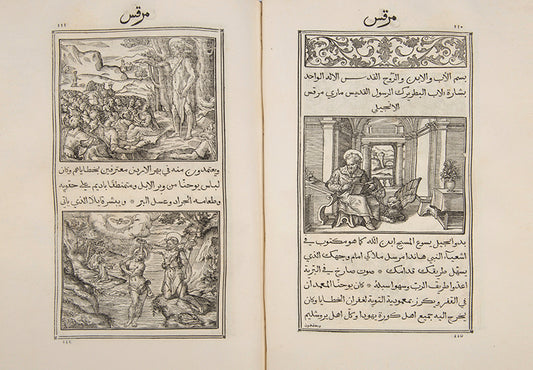 مرقس
بسم الاب والابن والروح القدس الاله الواحد
بشارة الاب البطريرك الرسول القديس ماري مرقس
الانجيلي
بدو انجيل يسوع المسيح ابن الله كما هو مكتوب في
اشعيا النبي هاندا مرسل ملاكي امام وجهك الذي
يسهل طريقك قدامك * صوت صارخ في البرية
اعدوا طريق الرب وسهوا سبله * كان يوحنا المعمدان
في القفر ويكرز بمعمودية التوبة لغفران الخطايا وكان
يخرج اليه جميع اهل كورة يهودا وكل اهل يروشليم
ويعتمدون
مرقس
ويعتمدون منه في نهر الاردن معترفين بخطاياهم وكان
لباس يوحنا من وبر الابل ومتمنطقا باديم على حقويه
وطعامه الجراد وعسل البر * وبشر قايلا الذي ياتي